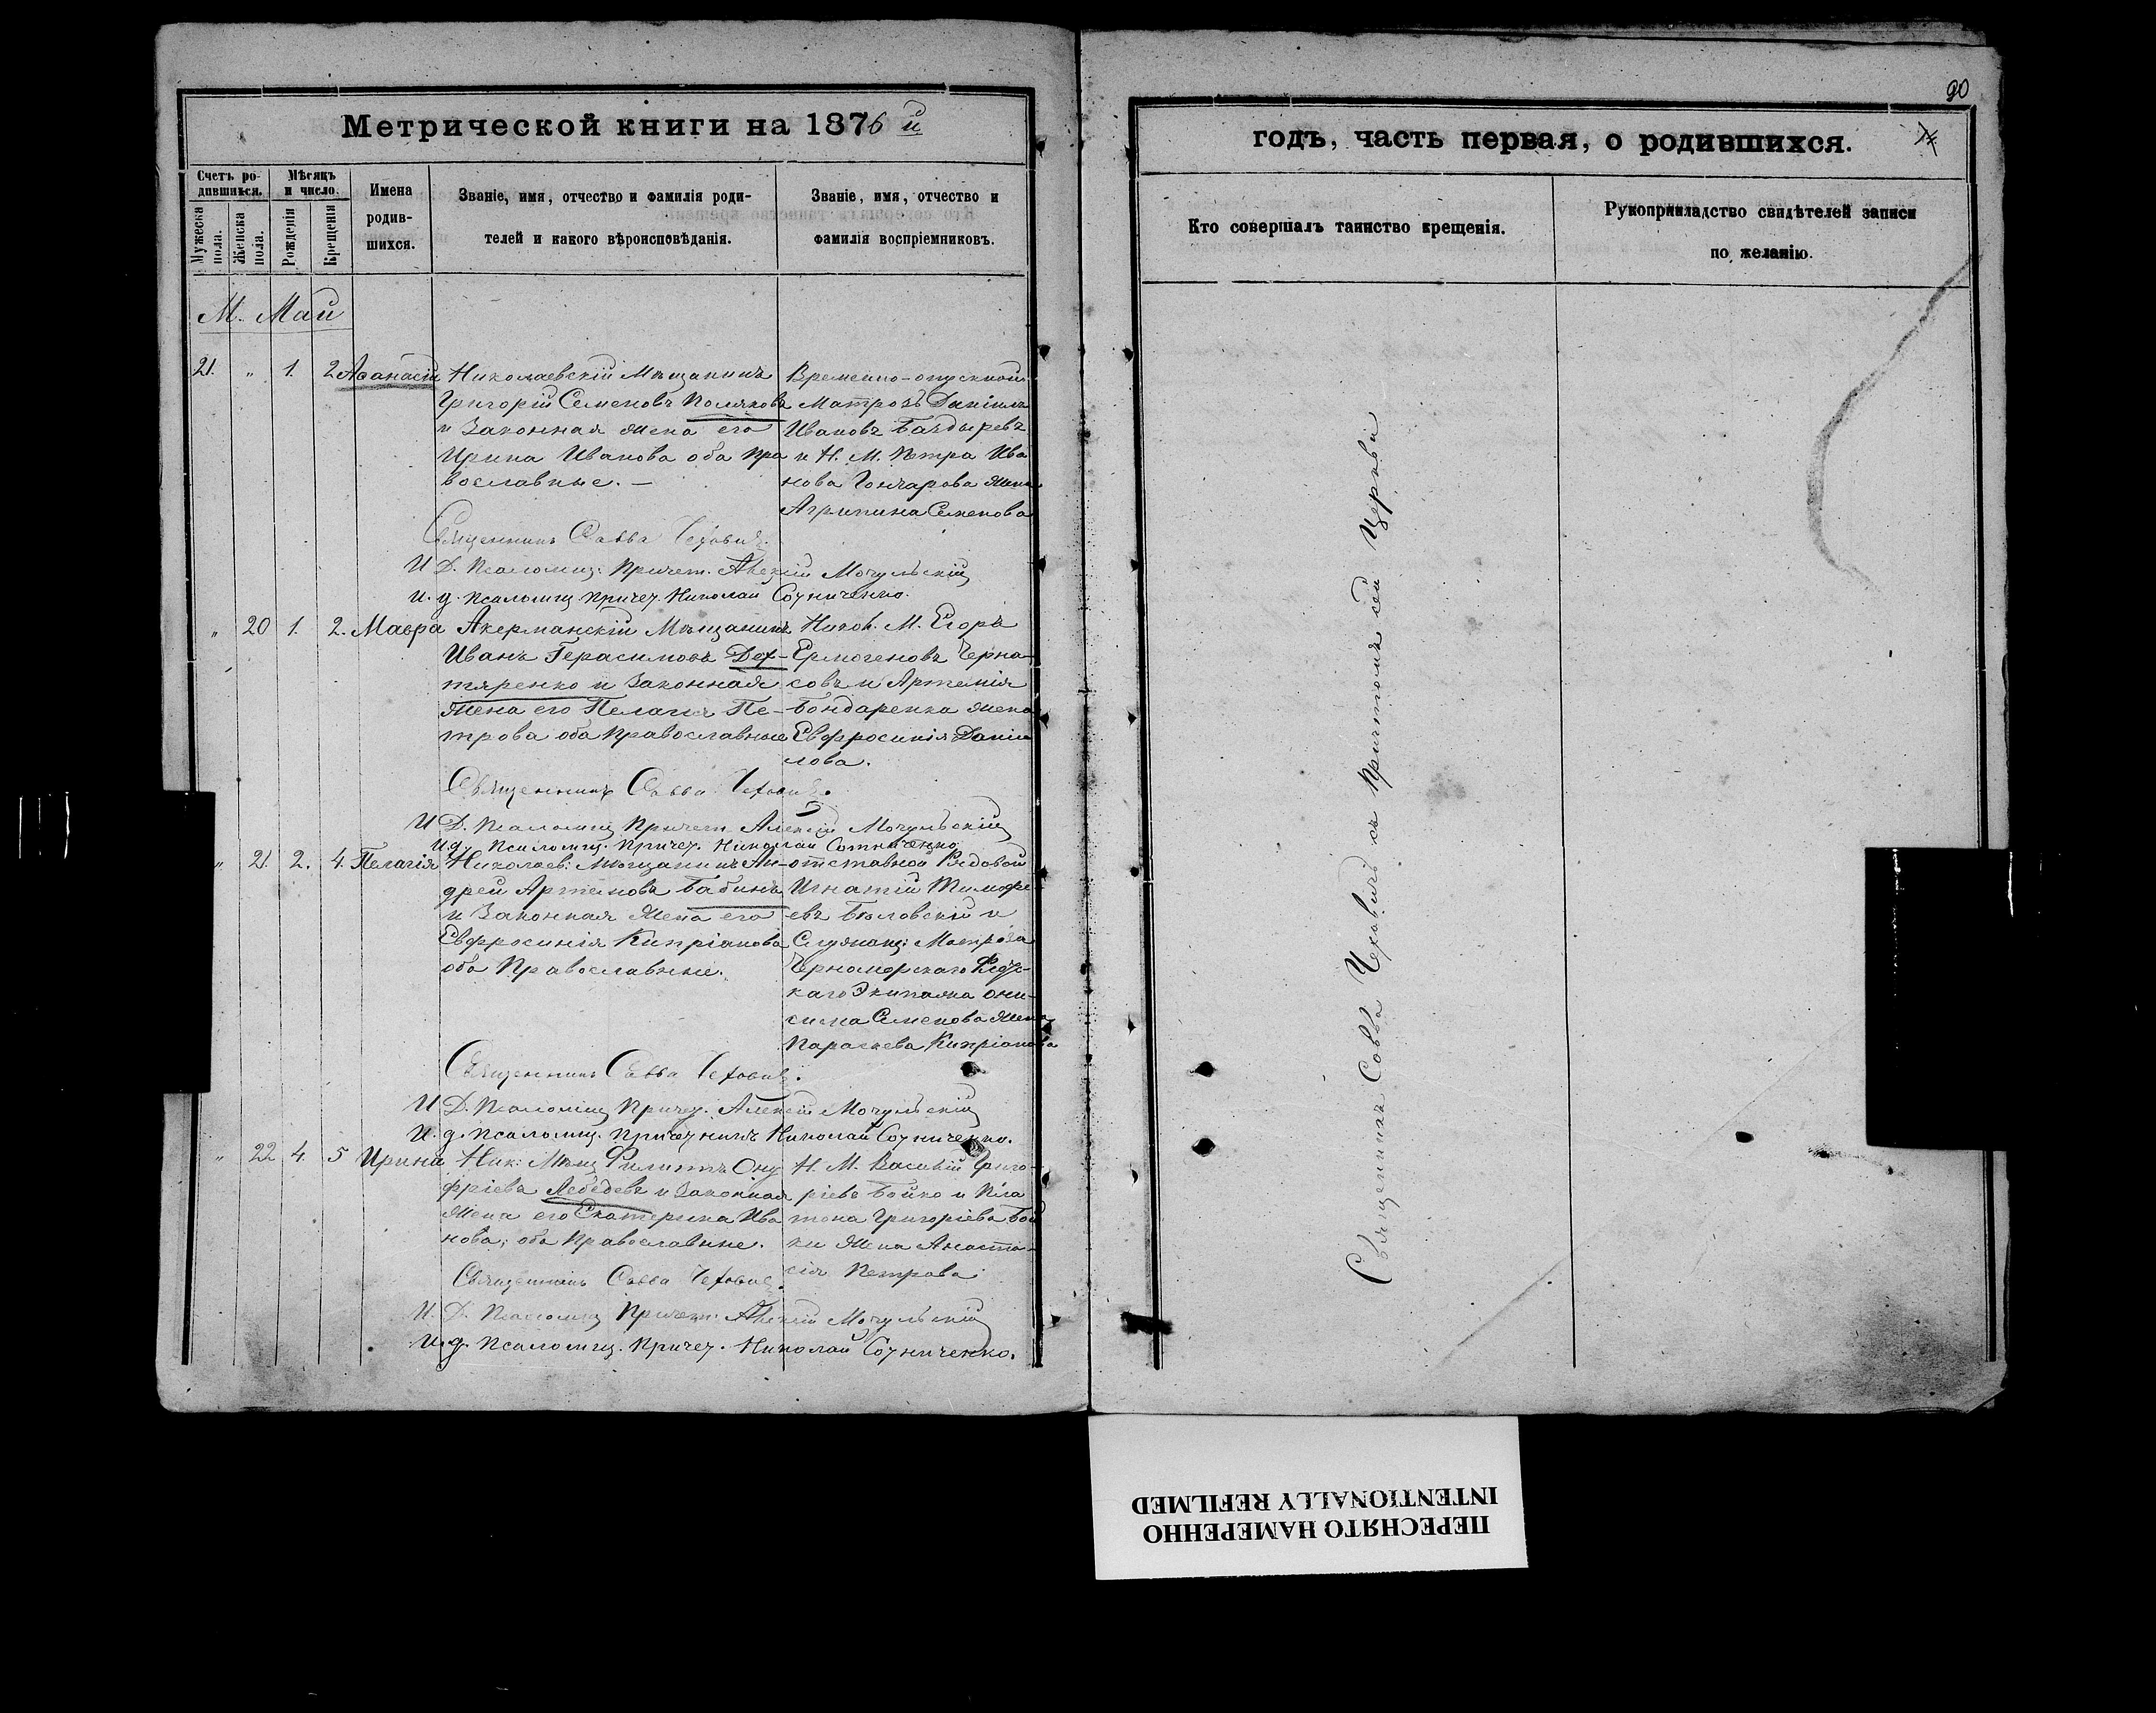 Метрической книги на 1876 й
Счетъ ро-
дившихся.
Мѣсяцъ
и число.
Мужеска
пола.
Женска
пола.
Рожденія
Крещенія
Имена
родив-
шихся.
Званіе, имя, отчество и фамилія роди-
телей и какого вѣроисповѣданія.
Званіе, имя, отчество и
фамилія воспріемниковъ.
М. Май
21. " 1. 2 Аѳанасій
Николаевскій Мѣщанинъ
Григорій Семеновъ Поляковъ
и Законная Жена его
Ирина Иванова оба Пра
вославные. —
Временно-отпускной
Матрозъ Даніилъ
Ивановъ Балдыревъ
и Н. М. Петра Ива
нова Гончарова Жена
Агрипина Семенова
Священникъ Савва Чехович
И Д. Псаломщ. Причет. Алексій Мочульскій
и. д. псаломщ причет. Николай Сотниченко.
" 20 1. 2. Мавра
Акерманскій Мѣщанинъ
Иванъ Герасимовъ Дех-
тяренко и Законная
Жена его Пелагія Пе-
трова оба Православные
Никол. М. Егоръ
Ермогеновъ Черна-
совъ и Артемія
Бондаренка жена
Евфросинія Даніи
лова.
Священникъ Савва Чехович.
И Д. Псаломщ Причет Алексій Мочульскій
И.д. Псаломщ. Причет. Николай Сотниченко
" 21. 2. 4. Пелагія
Николаев: Мѣщанинъ Ан-
дрей Артемовъ Бабинъ
и Законная Жена его
Евфросинія Кипріанова
оба Православные.
отставной Рядовой
Игнатій Тимофе
евъ Бѣловскій и
Служащ: Матроза
Черноморскаго Флот-
скаго Экипажа Они-
сима Семенова Жена
Параскева Кипріанова
Священникъ Савва Чехович.
И Д. Псаломщ Причет. Алексій Мочульскій
И. д. псаломщ. причетникъ Николай Сотниченко.
" 22 4. 5 Ирина
Ник: Мѣщ Филиппъ Ону
фріевъ Лебедевъ и Законная
Жена его Екатерина Ива
нова, оба Православные.
Н. М. Василій Григо-
ріевъ Бойко и Пла
тона Григоріева Бой
ки Жена Анаста-
сія Петрова
Священникъ Савва Чехович.
И. Д. Псаломщ Причет: Алексій Мочульскій
и.д. псаломщ. Причет. Николай Сотниченко.
90
годъ, часть первая, о родившихся.
Кто совершалъ таинство крещенія.
Рукоприкладство свидѣтелей записи
по желанію.
Священникъ Савва Чеховичъ съ причтомъ сей Церкви
ПЕРЕСНЯТО НАМЕРЕННО
INTENTIONALLY REFILMED